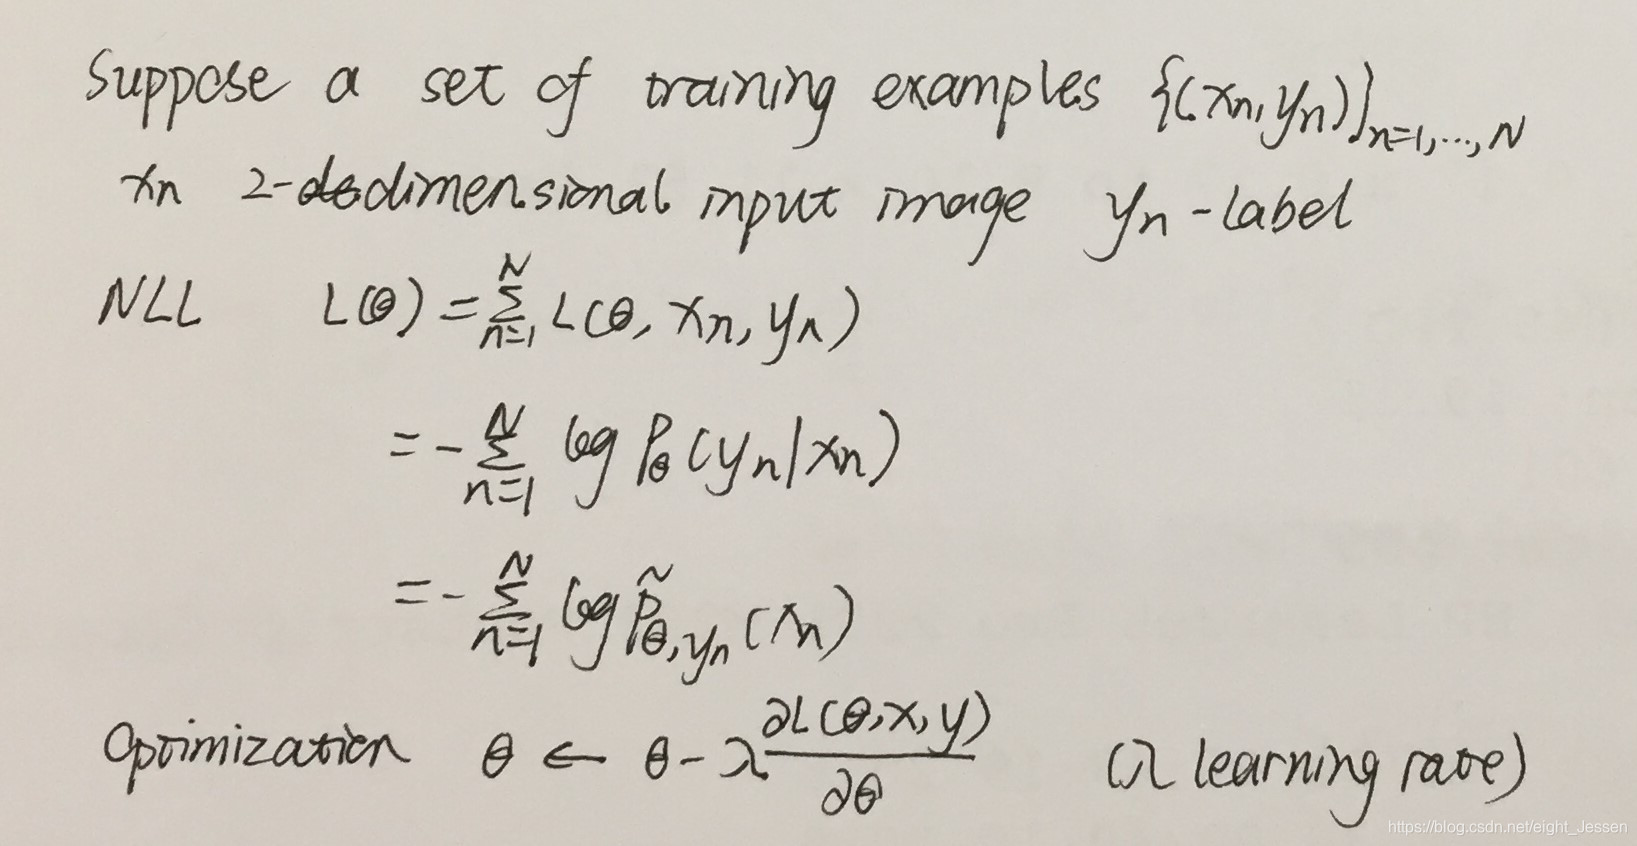 Suppose a set of training examples {(xn, yn)}n=1,...,N
xn 2-dedimensional input image yn-label
NLL L(θ) = ∑_{n=1}^{N} L(θ, xn, yn)
= - ∑_{n=1}^{N} log Pθ(yn|xn)
= - ∑_{n=1}^{N} log P̃θ,yn(xn)
Optimization θ ← θ - λ ∂L(θ,x,y)/∂θ (λ learning rate)
https://blog.csdn.net/eight_Jessen